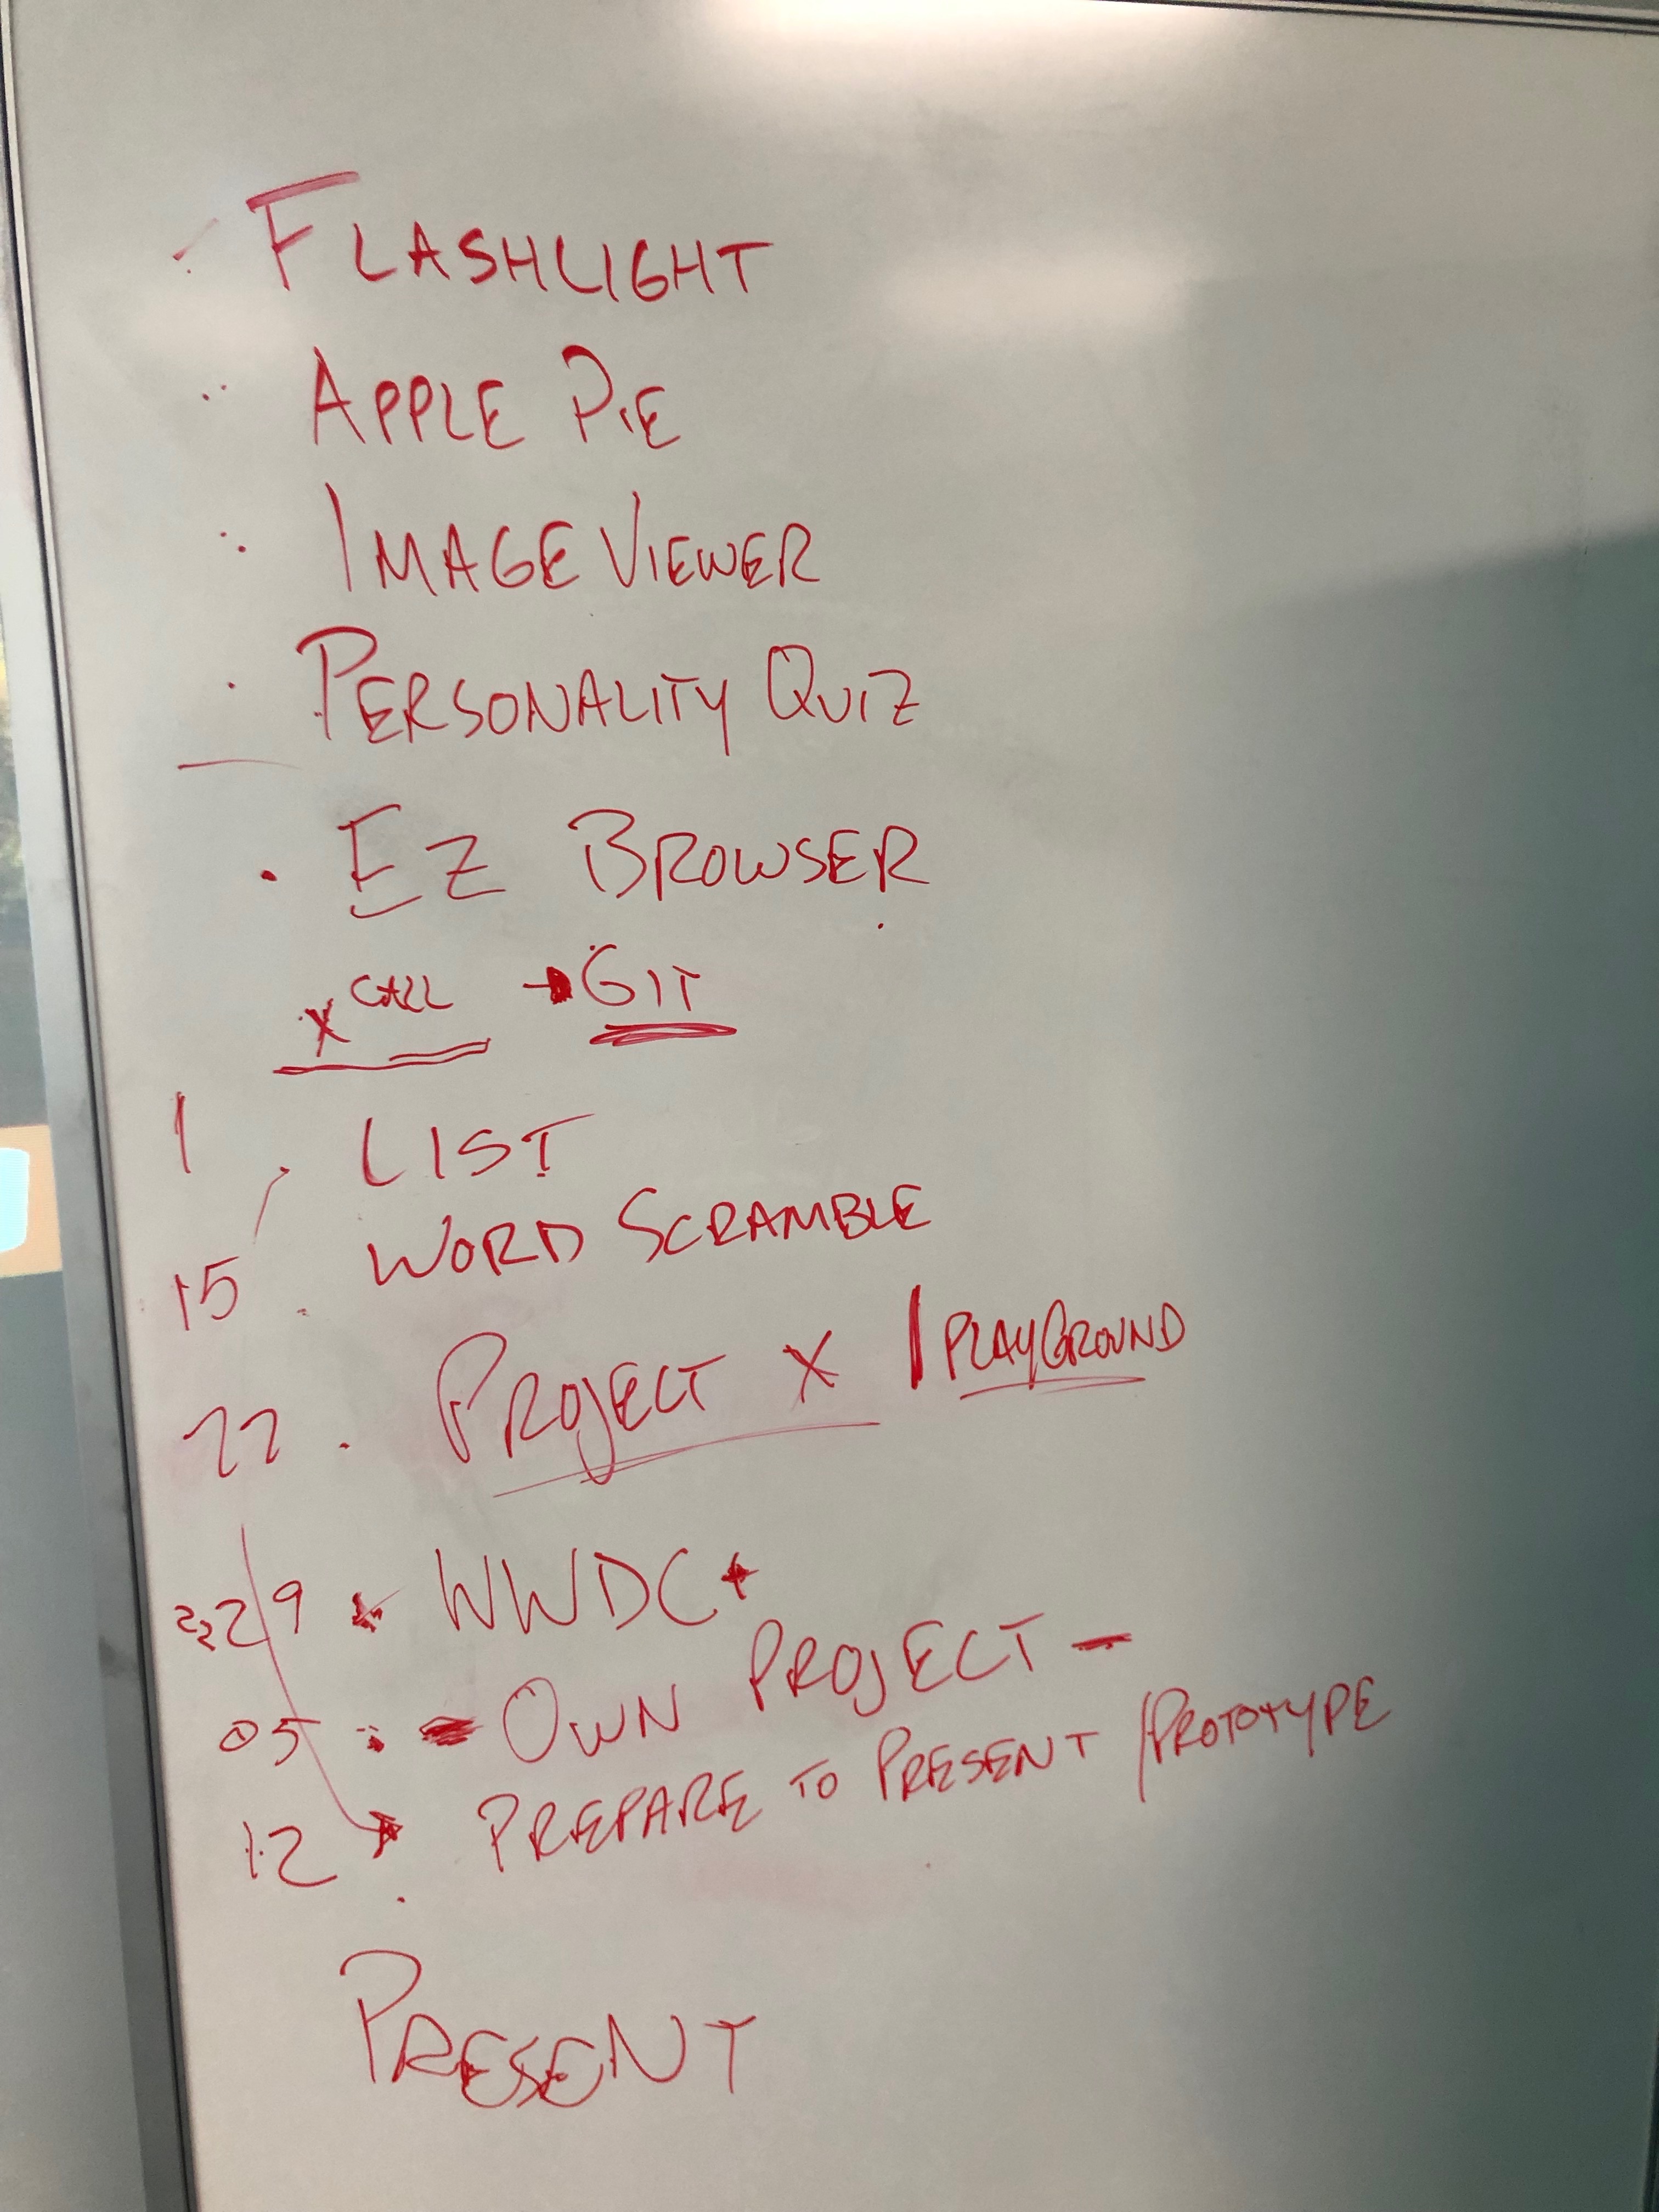 FLASHLIGHT
APPLE PIE
IMAGE VIEWER
PERSONALITY QUIZ
EZ BROWSER
x CALL → GIT
1 . LIST
WORD SCRAMBLE
15 .
22 . PROJECT X / PLAYGROUND
29 WWDC+
05 - OWN PROJECT -
12 PREPARE TO PRESENT / PROTOTYPE
PRESENT